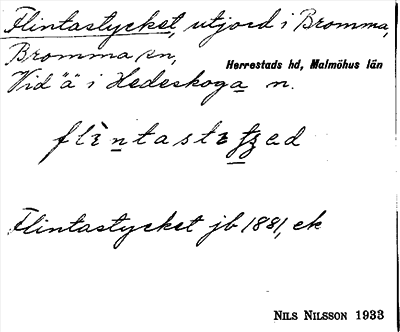 Flintastycket, utjord i Bromma,
Bromma sn,
Herrestads hd, Malmöhus län
Vid "ä" i Hedeskoga n.
Flintastycket jb 1881, ek
NILS NILSSON 1933